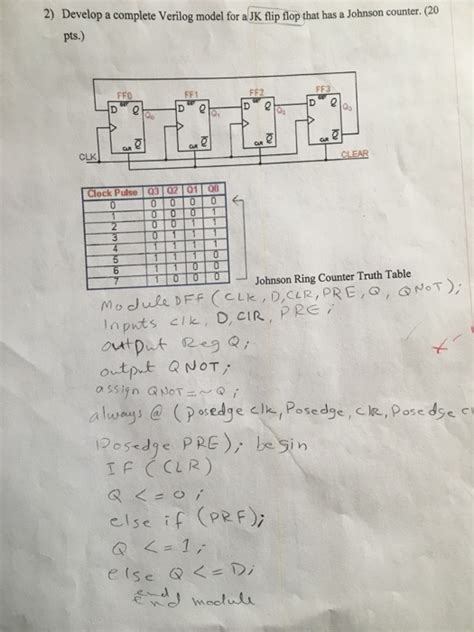 2) Develop a complete Verilog model for a JK flip flop that has a Johnson counter. (20
pts.)
FF0 FF1 FF2 FF3
SET SET SET SET
D Q Q0 D Q Q1 D Q Q2 D Q Q3
CLR Q CLR Q CLR Q CLR Q
CLK CLEAR
Clock Pulse Q3 Q2 Q1 Q0
0 0 0 0 0
1 0 0 0 1
2 0 0 1 1
3 0 1 1 1
4 1 1 1 1
5 1 1 1 0
6 1 1 0 0
7 1 0 0 0
Johnson Ring Counter Truth Table
Module DFF ( CLK, D, CLR, PRE, Q, QNOT);
Inputs clk, D, CIR, PRE;
output Reg Q;
output QNOT;
assign QNOT = ~Q;
always @ (posedge clk, Posedge, clk, Posedge
Posedge PRE); begin
IF (CLR)
Q <= 0;
else if (PRF);
Q <= 1;
else Q <= D;
end
End module